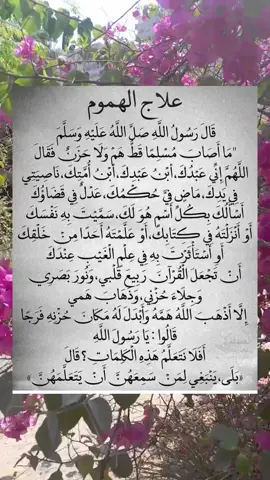 علاج الهموم
قَالَ رَسُولُ اللَّهِ صَلَّ اللَّهُ عَلَيْهِ وَسَلَّمَ
"مَا أَصَابَ مُسْلِمًا قَطُّ هَمٌّ وَلَا حَزَنٌ فَقَالَ
اللَّهُمَّ إِنِّي عَبْدُكَ، ابْنُ عَبْدِكَ، ابْنُ أَمَتِكَ، نَاصِيَتِي
فِي يَدِكَ، مَاضٍ فِيَّ حُكْمُكَ، عَدْلٌ فِي قَضَاؤُكَ
أَسْأَلُكَ بِكُلِّ اسْمٍ هُوَ لَكَ، سَمَّيْتَ بِهِ نَفْسَكَ
أَوْ أَنْزَلْتَهُ فِي كِتَابِكَ، أَوْ عَلَّمْتَهُ أَحَدًا مِنْ خَلْقِكَ
أَوِ اسْتَأْثَرْتَ بِهِ فِي عِلْمِ الْغَيْبِ عِنْدَكَ
أَنْ تَجْعَلَ الْقُرْآنَ رَبِيعَ قَلْبِي، وَنُورَ بَصَرِي
وَجِلَاءَ حُزْنِي، وَذَهَابَ هَمِّي
إِلَّا أَذْهَبَ اللَّهُ هَمَّهُ وَأَبْدَلَ لَهُ مَكَانَ حُزْنِهِ فَرَجًا
قَالُوا: يَا رَسُولَ اللَّهِ
أَفَلَا نَتَعَلَّمُ هَذِهِ الْكَلِمَاتِ؟ قَالَ
«بَلَى، يَنْبَغِي لِمَنْ سَمِعَهُنَّ أَنْ يَتَعَلَّمَهُنَّ»